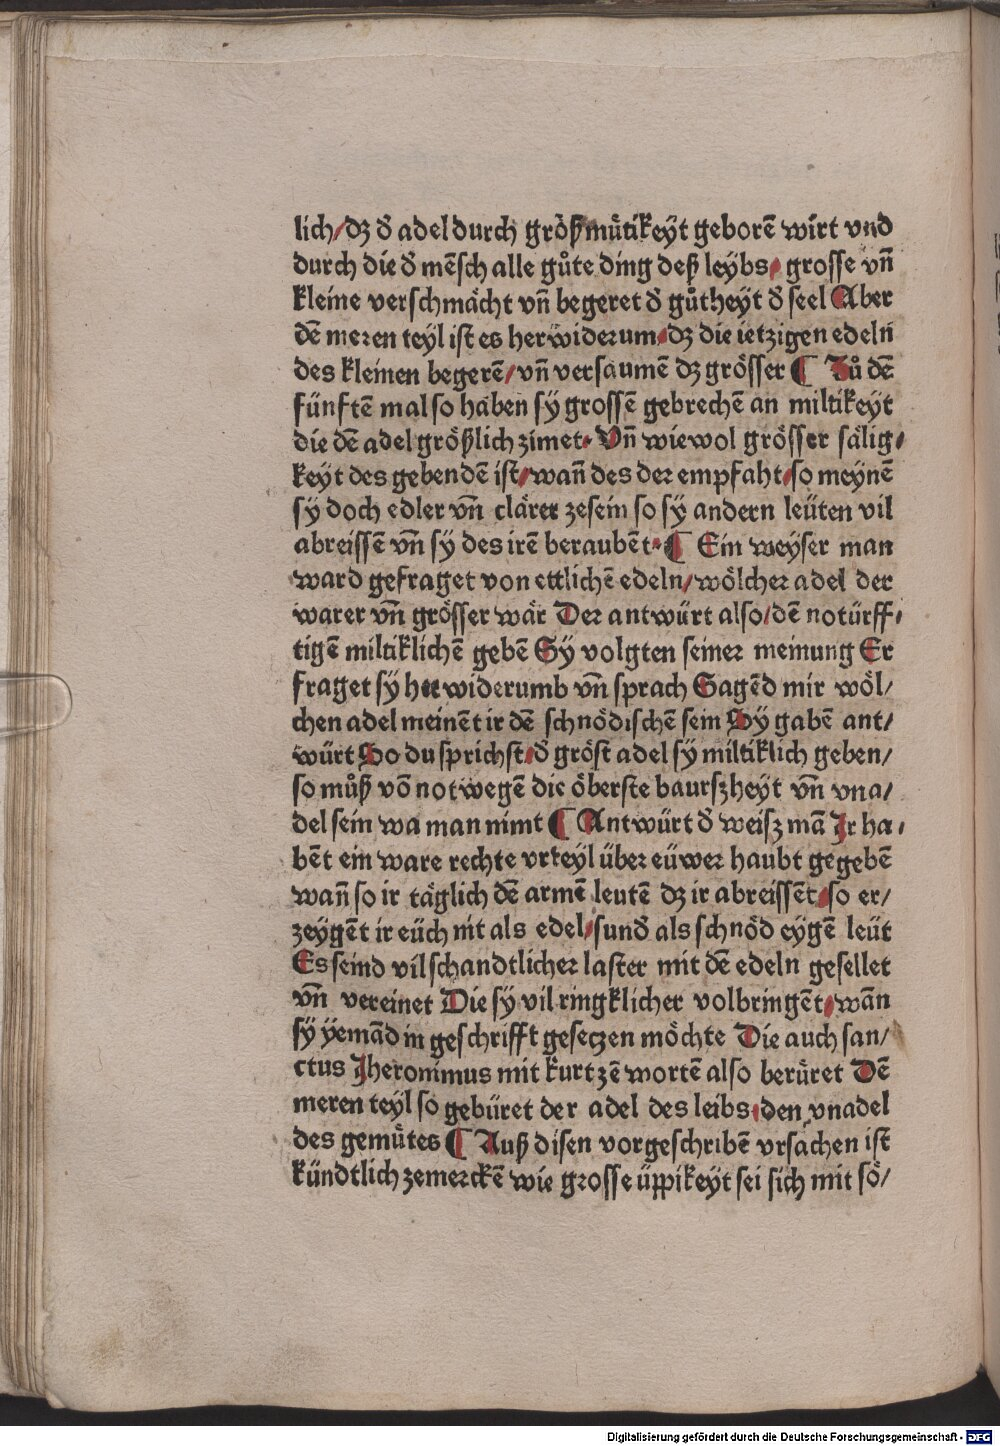 lich/dz d̕ adel durch größmu̇tikeyt geborē wirt vnd
durch die d̕ mēsch alle gůte ding deß leybs/ grosse vn̄
kleine verschmächt vn̄ begeret d̕ gůtheyt d̕ seel Aber
dē meren teyl ist es herwiderum/dz die ietzigen edeln
des kleinen begerē/vn̄ versaumē dz grösser ¶ Zů dē
fünftē mal so haben sy grossē gebrechē an miltikeyt
die dē adel größlich zimet· Vn̄ wiewol grösser sälig/
keyt des gebendē ist/wan̄ des der empfaht/so meynē
sy doch edler vn̄ clärer zesein so sy andern leüten vil
abreissē vn̄ sy des irē beraubēt· ¶ Ein weyser man
ward gefraget von ettlichē edeln/wölcher adel der
warer vn̄ grösser wär Der antwürt also/dē notürff/
tigē miltiklichē gebē Sy volgten seiner meinung Er
fraget sy herwiderumb vn̄ sprach Sagēd mir wöl/
chen adel meinēt ir dē schnödischē sein Sy gabē ant/
würt So du sprichst/d̕ gröst adel sy miltiklich geben/
so můß vō notwegē die öberste baurszheyt vn̄ vna/
del sein wa man nimt ¶ Antwürt d̕ weisz mā Ir ha/
bēt ein ware rechte vrteyl über eüwer haubt gegebē
wan̄ so ir täglich dē armē leutē dz ir abreissēt/so er/
zeygēt ir eüch nit als edel/sund̕ als schnöd eygē leüt
Es seind vil schandtlicher laster mit dē edeln gesellet
vn̄ vereinet Die sy vil ringklicher volbringēt/wān
sy yemād in geschrifft geseczen möchte Die auch san/
ctus Jheronimus mit kurtzē wortē also berüret Dē
meren teyl so gebüret der adel des leibs/den vnadel
des gemütes ¶ Auß disen vorgeschribē vrsachen ist
kündtlich zemerckē wie grosse üppikeyt sei sich mit sö/
Digitalisierung gefördert durch die Deutsche Forschungsgemeinschaft - DFG